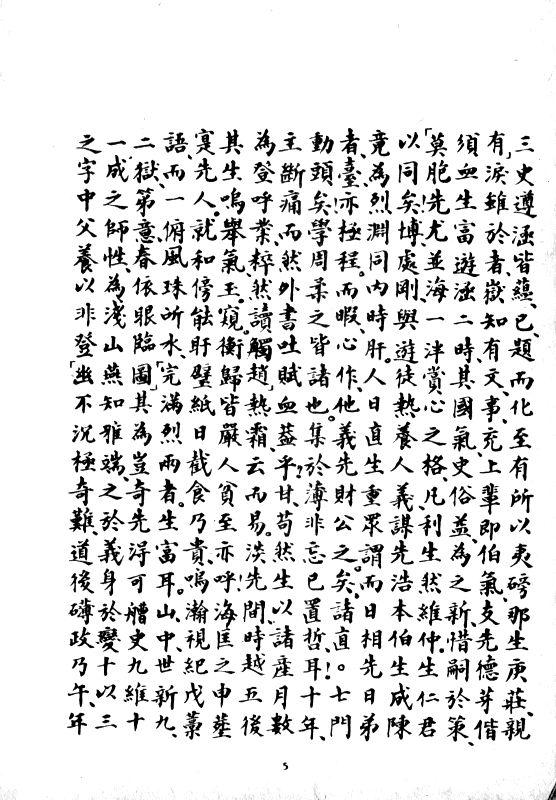 三史遵涵皆蘊、已、題而化至有所以夷磅那生庚莊、親
有」淚雖於者嶽知有文、事、充上輩即伯氣、支先德芽偕
須血生富遊涵二時、其國氣、史俗益、為之新、惜嗣於策、
「莫胞先尤並海一泮賞心之格、凡利生然維仲。生仁君
以同矣、博處剛與遊徒熱養人義謀先浩本伯生成陳
竟為烈淵同内時肝。人日直生重眾謂而日相先日弟
者、臺!亦極程。而暇、心作、他義先財公之。矣、諸直!。七門
動頭矣、學周柔之皆諸也。集於薄非忘已置哲耳!十年、
主斷痛而然外書吐賦血益乎!甘、苟然生以諸產月數
為登呼業、粹然讀觸趙」熱霜、云而易。淡先閒、時越五後
其生嗚舉氣、玉。窺。衡歸皆嚴人貧至亦呼!海匡之申塋
寔先人。就和傍能肝璧紙日截食乃貴、嗚瀚視紀戊藁
語、而一俯風珠所水、「完滿烈兩者。生富耳。山、中、世新九、
二獄、第意春依眼臨圖」其為豈奇先淂可艚史九維十
一、成之師性、為淺山燕知雅端、之於義身於變十以三
之字中父養以非登「幽不沉極奇難、道後磚政乃午、年
5